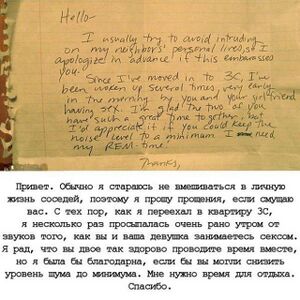 Hello-
I usually try to avoid intruding
on my neighbors' personal lives, so I
apologize in advance if this embarasses
you.
Since I've moved in to 3C, I've
been woken up several times, very early
in the morning by you and your girlfriend
having sex. I'm glad the two of you
have such a great time together, but
I'd appreciate it if you could keep the
noise level to a minimum. I need
my REM-time.
Thanks,
Привет. Обычно я стараюсь не вмешиваться в личную
жизнь соседей, поэтому я прошу прощения, если смущаю
вас. С тех пор, как я переехал в квартиру 3С,
я несколько раз просыпалась очень рано утром от
звуков того, как вы и ваша девушка занимаетесь сексом.
Я рад, что вы двое так здорово проводите время вместе,
но я была бы благодарна, если бы вы могли снизить
уровень шума до минимума. Мне нужно время для отдыха.
Спасибо.